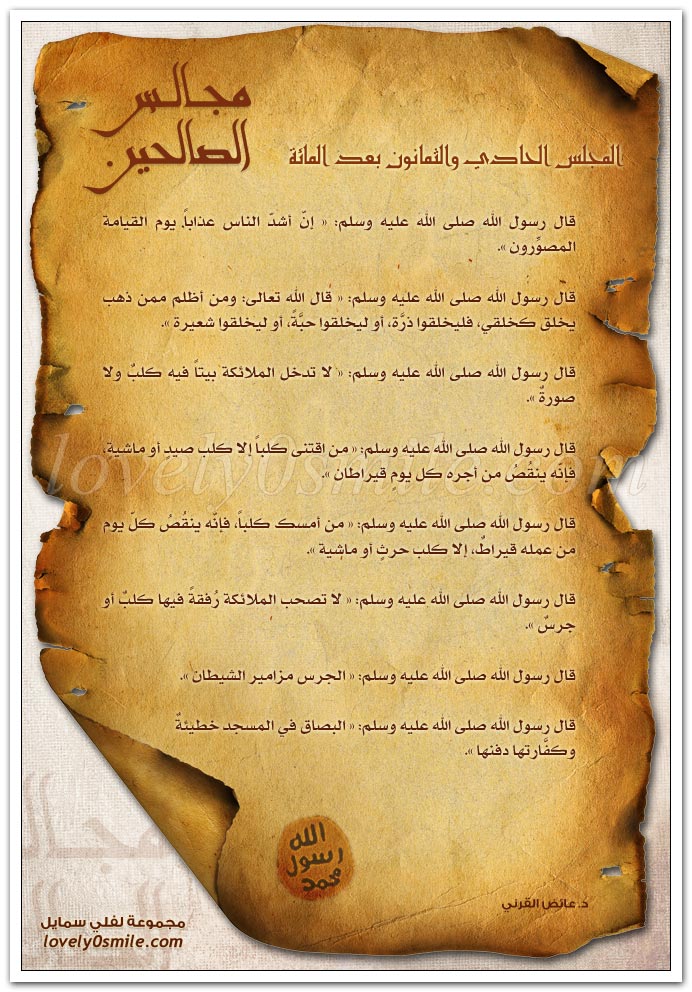 مجالس
الصالحين
المجلس الحادي والثمانون بعد المائة
قال رسول الله صلى الله عليه وسلم: « إنّ أشدّ الناس عذاباً يوم القيامة
المصوِّرون ».
قال رسول الله صلى الله عليه وسلم: « قال الله تعالى: ومن أظلم ممن ذهب
يخلق كخلقي، فليخلقوا ذرَّة، أو ليخلقوا حبَّةً، أو ليخلقوا شعيرة ».
قال رسول الله صلى الله عليه وسلم: « لا تدخل الملائكة بيتاً فيه كلبٌ ولا
صورةٌ ».
قال رسول الله صلى الله عليه وسلم: « من اقتنى كلباً إلا كلب صيدٍ أو ماشية،
فإنه ينقُصُ من أجره كل يوم قيراطان ».
lovely0smile.com
قال رسول الله صلى الله عليه وسلم: « من أمسك كلباً، فإنّه ينقُصُ كلّ يوم
من عمله قيراطٌ، إلا كلب حرثٍ أو ماشية ».
قال رسول الله صلى الله عليه وسلم: « لا تصحب الملائكة رُفقةً فيها كلبٌ أو
جرسٌ ».
قال رسول الله صلى الله عليه وسلم: « الجرس مزامير الشيطان ».
قال رسول الله صلى الله عليه وسلم: « البصاق في المسجد خطيئةٌ
وكفَّارتها دفنها ».
الله
رسول
محمد
د.عائض القرني
مجموعة لفلي سمايل
lovely0smile.com